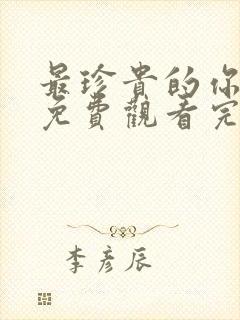 最珍貴的你
免費觀看完
李彥辰